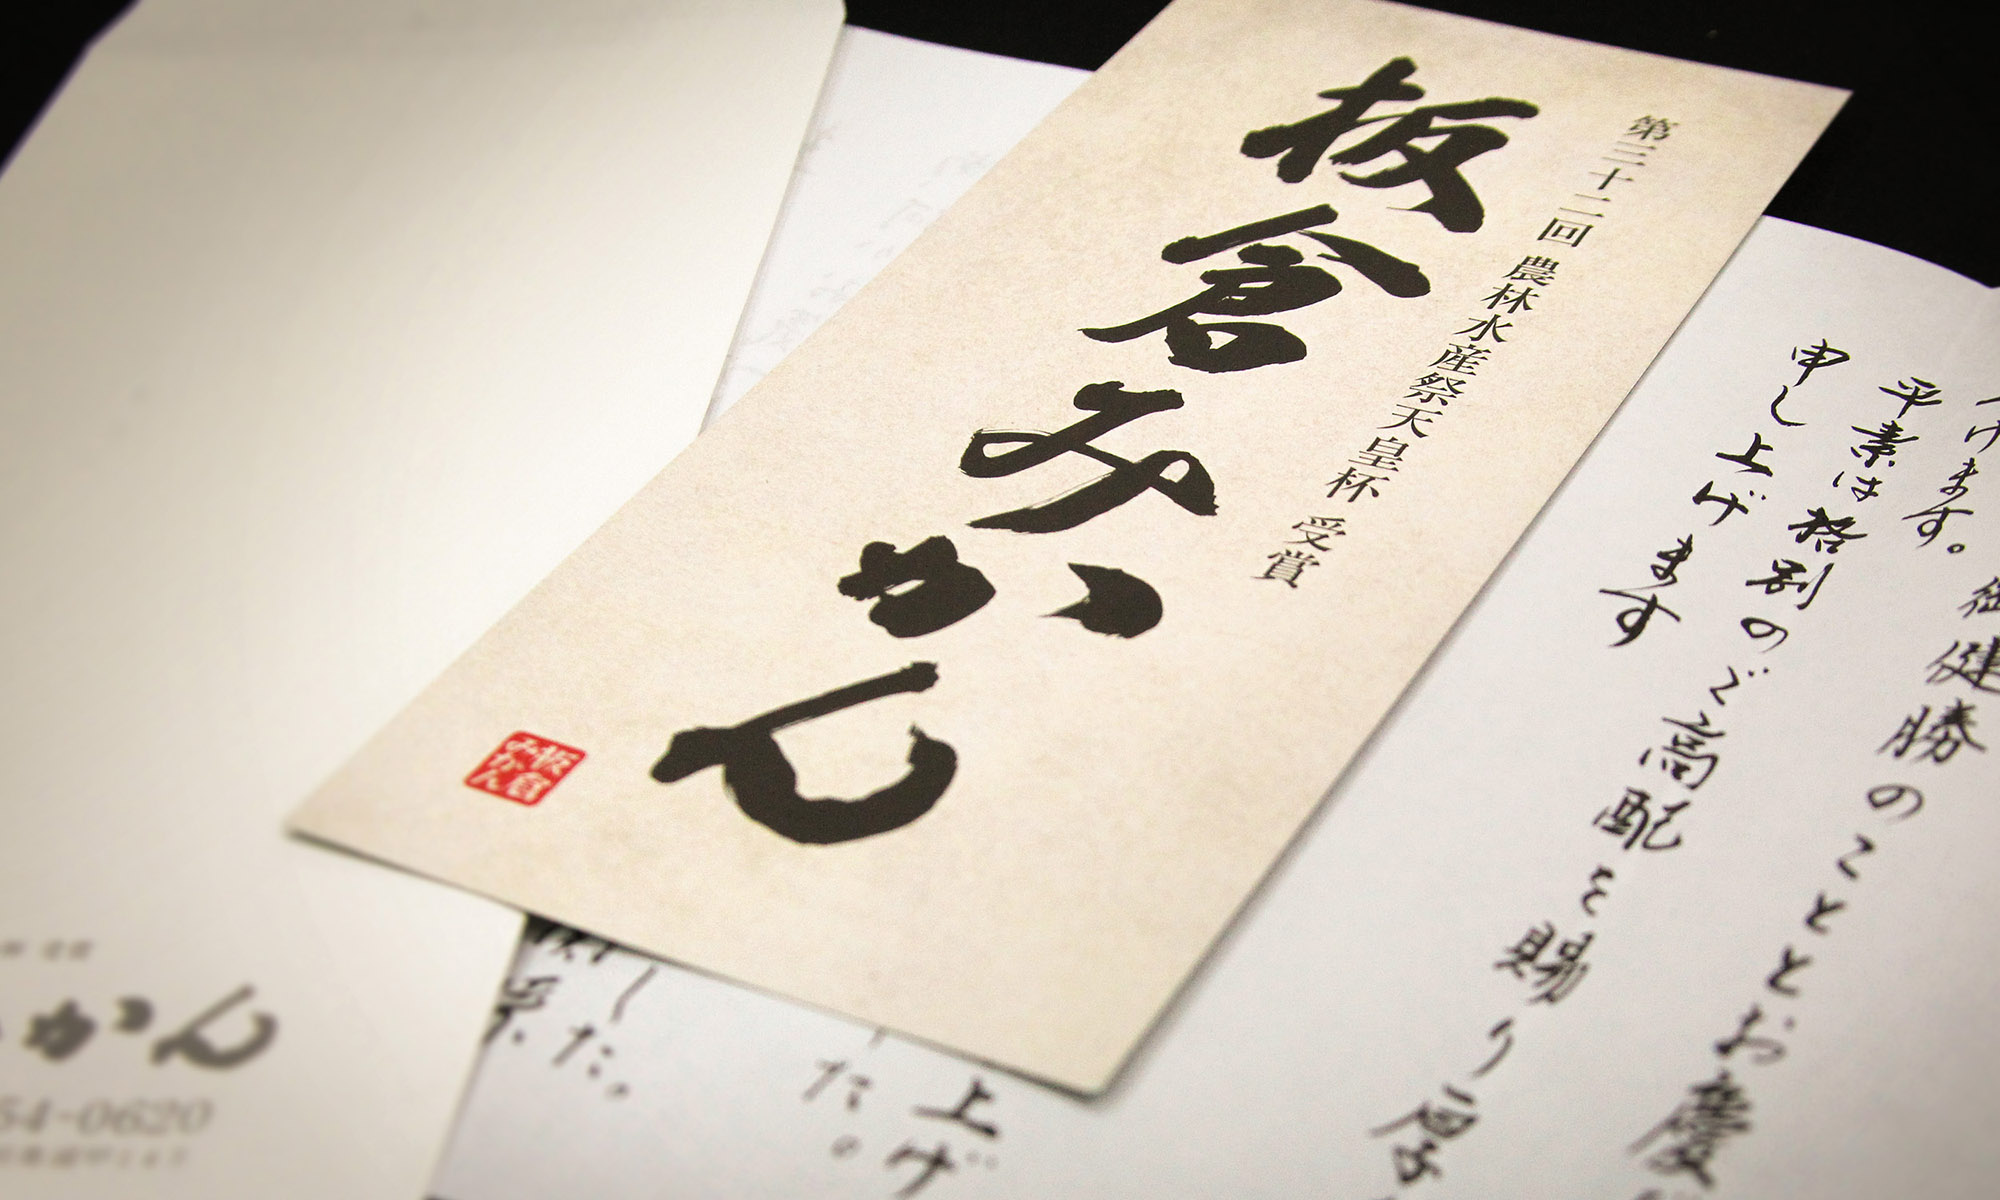 第三十二回 農林水産祭天皇杯 受賞
板倉みかん
板倉
みかん
げます。 御健勝のこととお慶
平素は格別のご高配を賜り厚
申し上げます
上げ
た。
した。
かん
54-0620